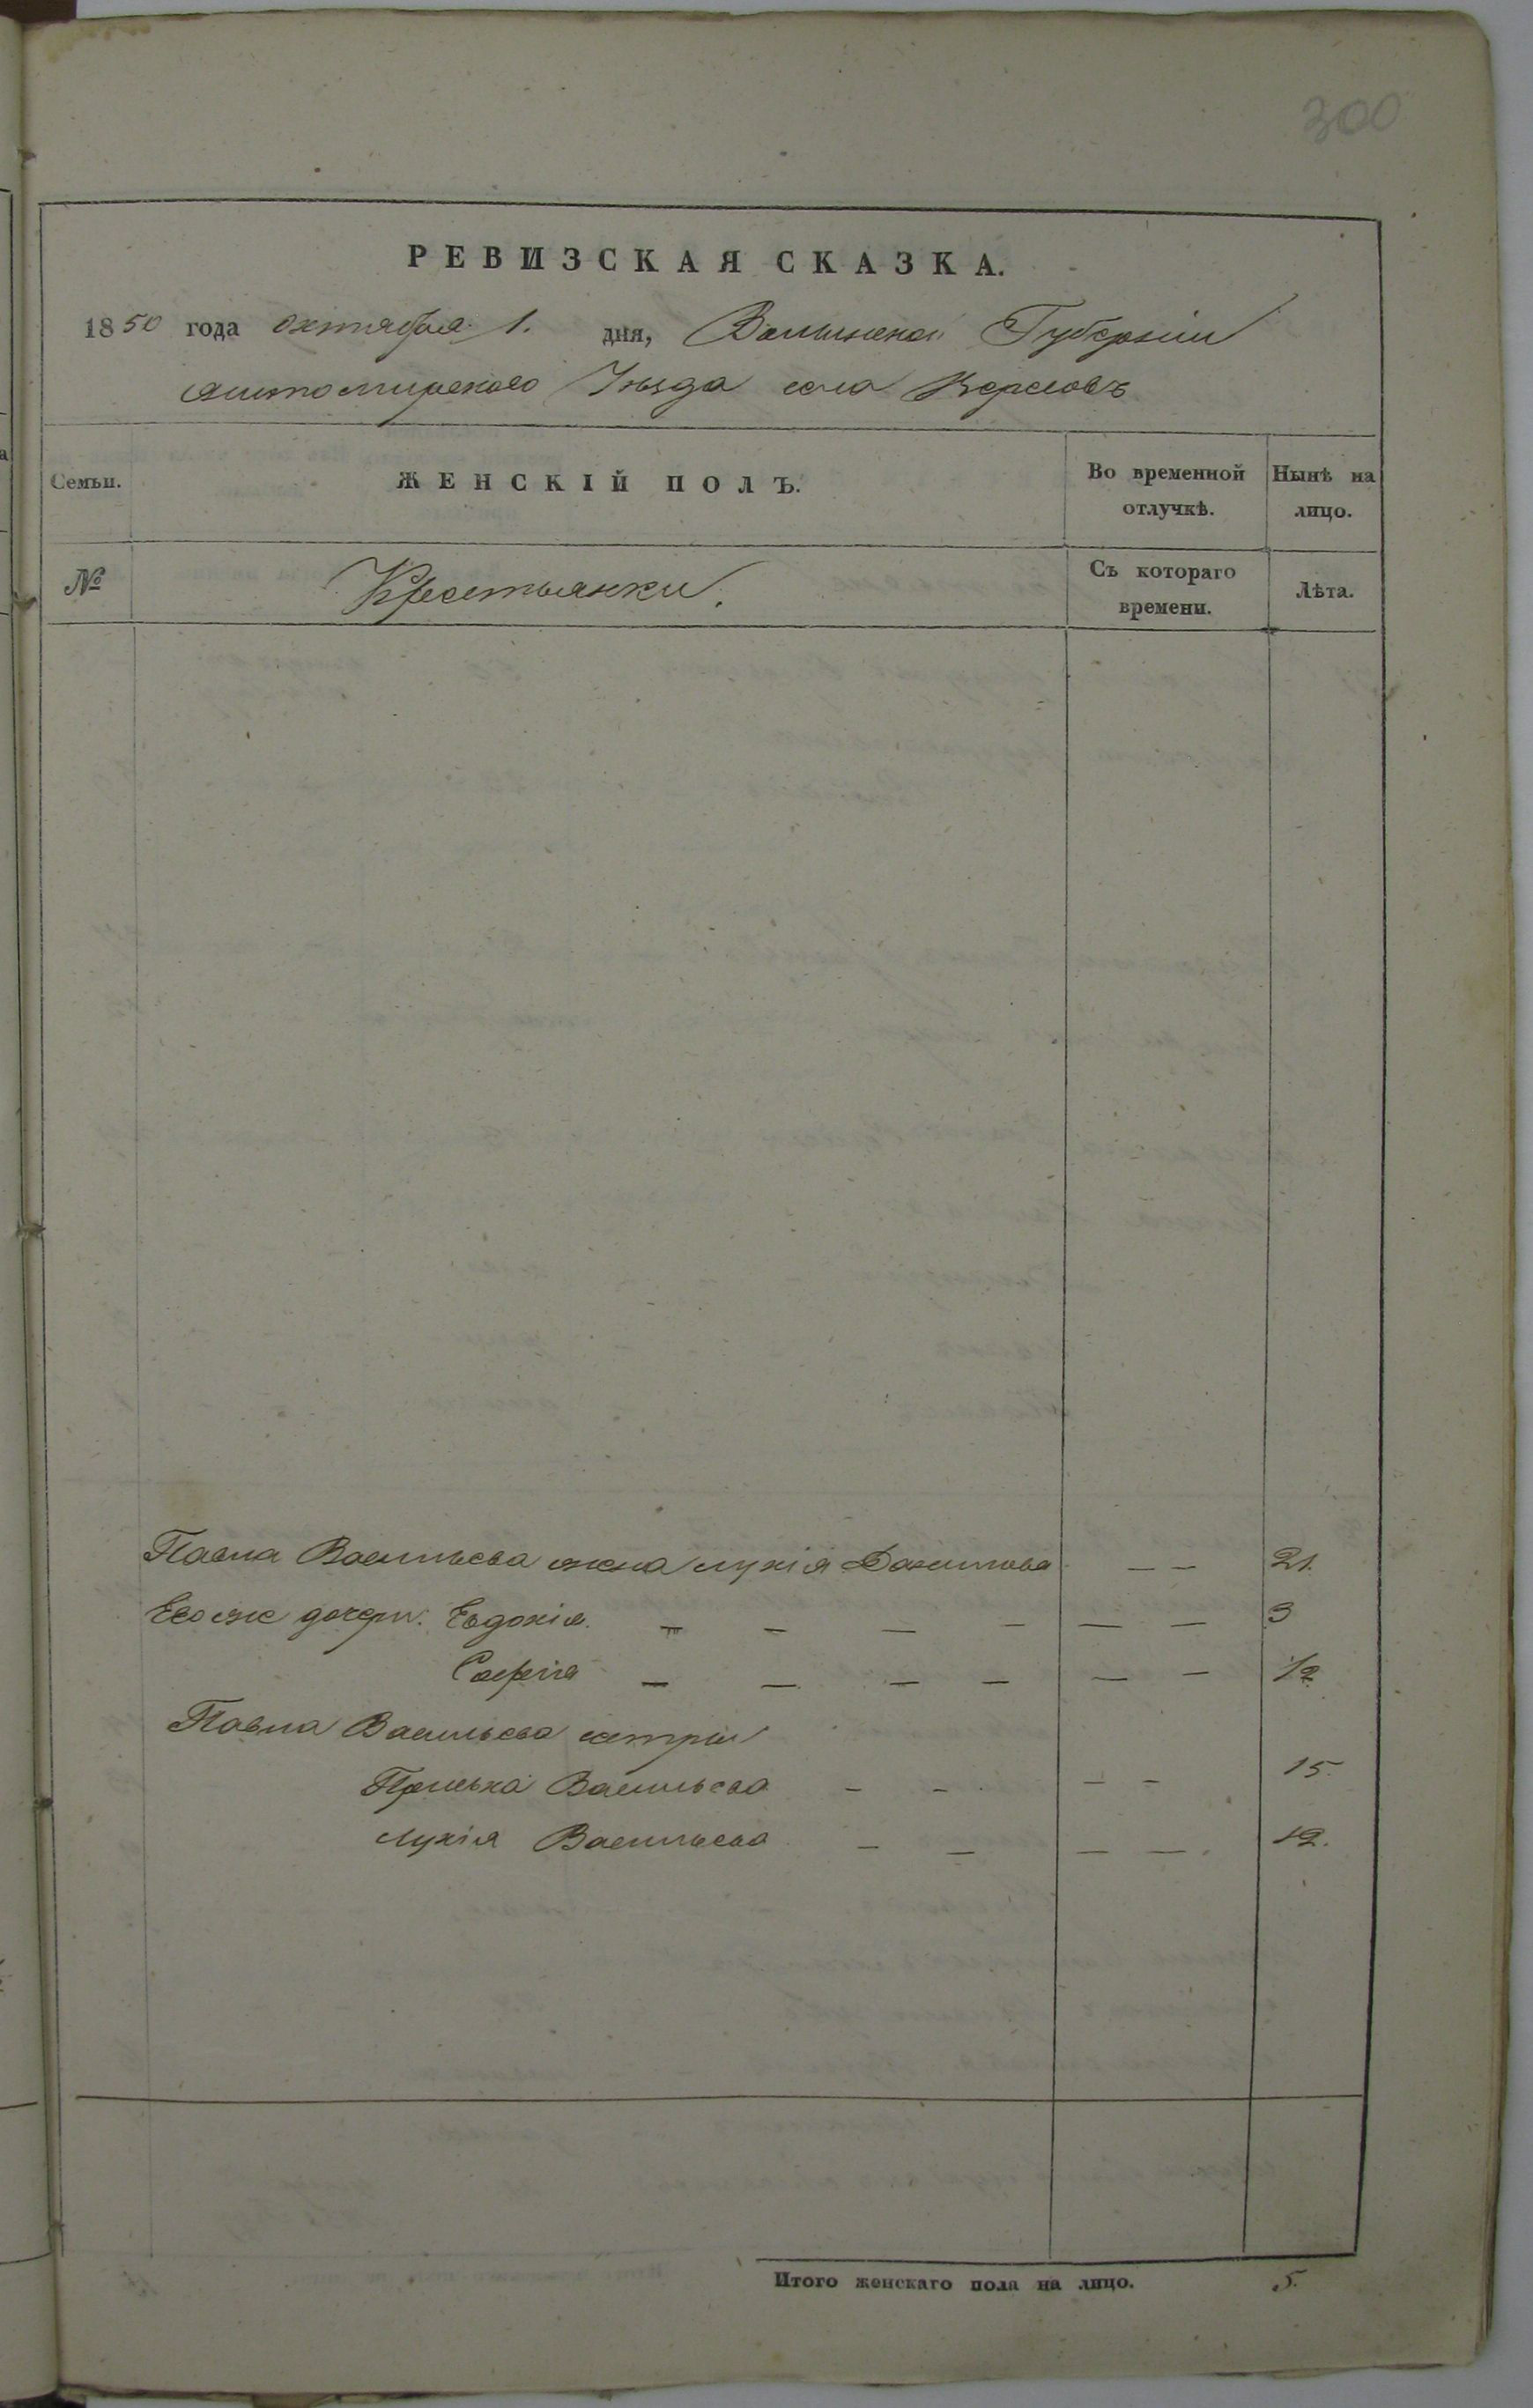 300
РЕВИЗСКАЯ СКАЗКА.
1850 года октября 1. дня, Волынской Губерніи
житомирскаго Уѣзда села
Семьи. ЖЕНСКІЙ ПОЛЪ. Во временной отлучкѣ. Нынѣ на лицо.
№ Крестьянки. Съ котораго времени. Лѣта.
Павла Васильева жена лукія Данилова — — 21.
Его же дочери: Евдокія. — — — — — — 3
Софія — — — — — — 1/2
Павла Васильева сестры
Васильева — — — — 15.
лукія Васильева — — — — 12.
Итого женскаго пола на лицо. 5.